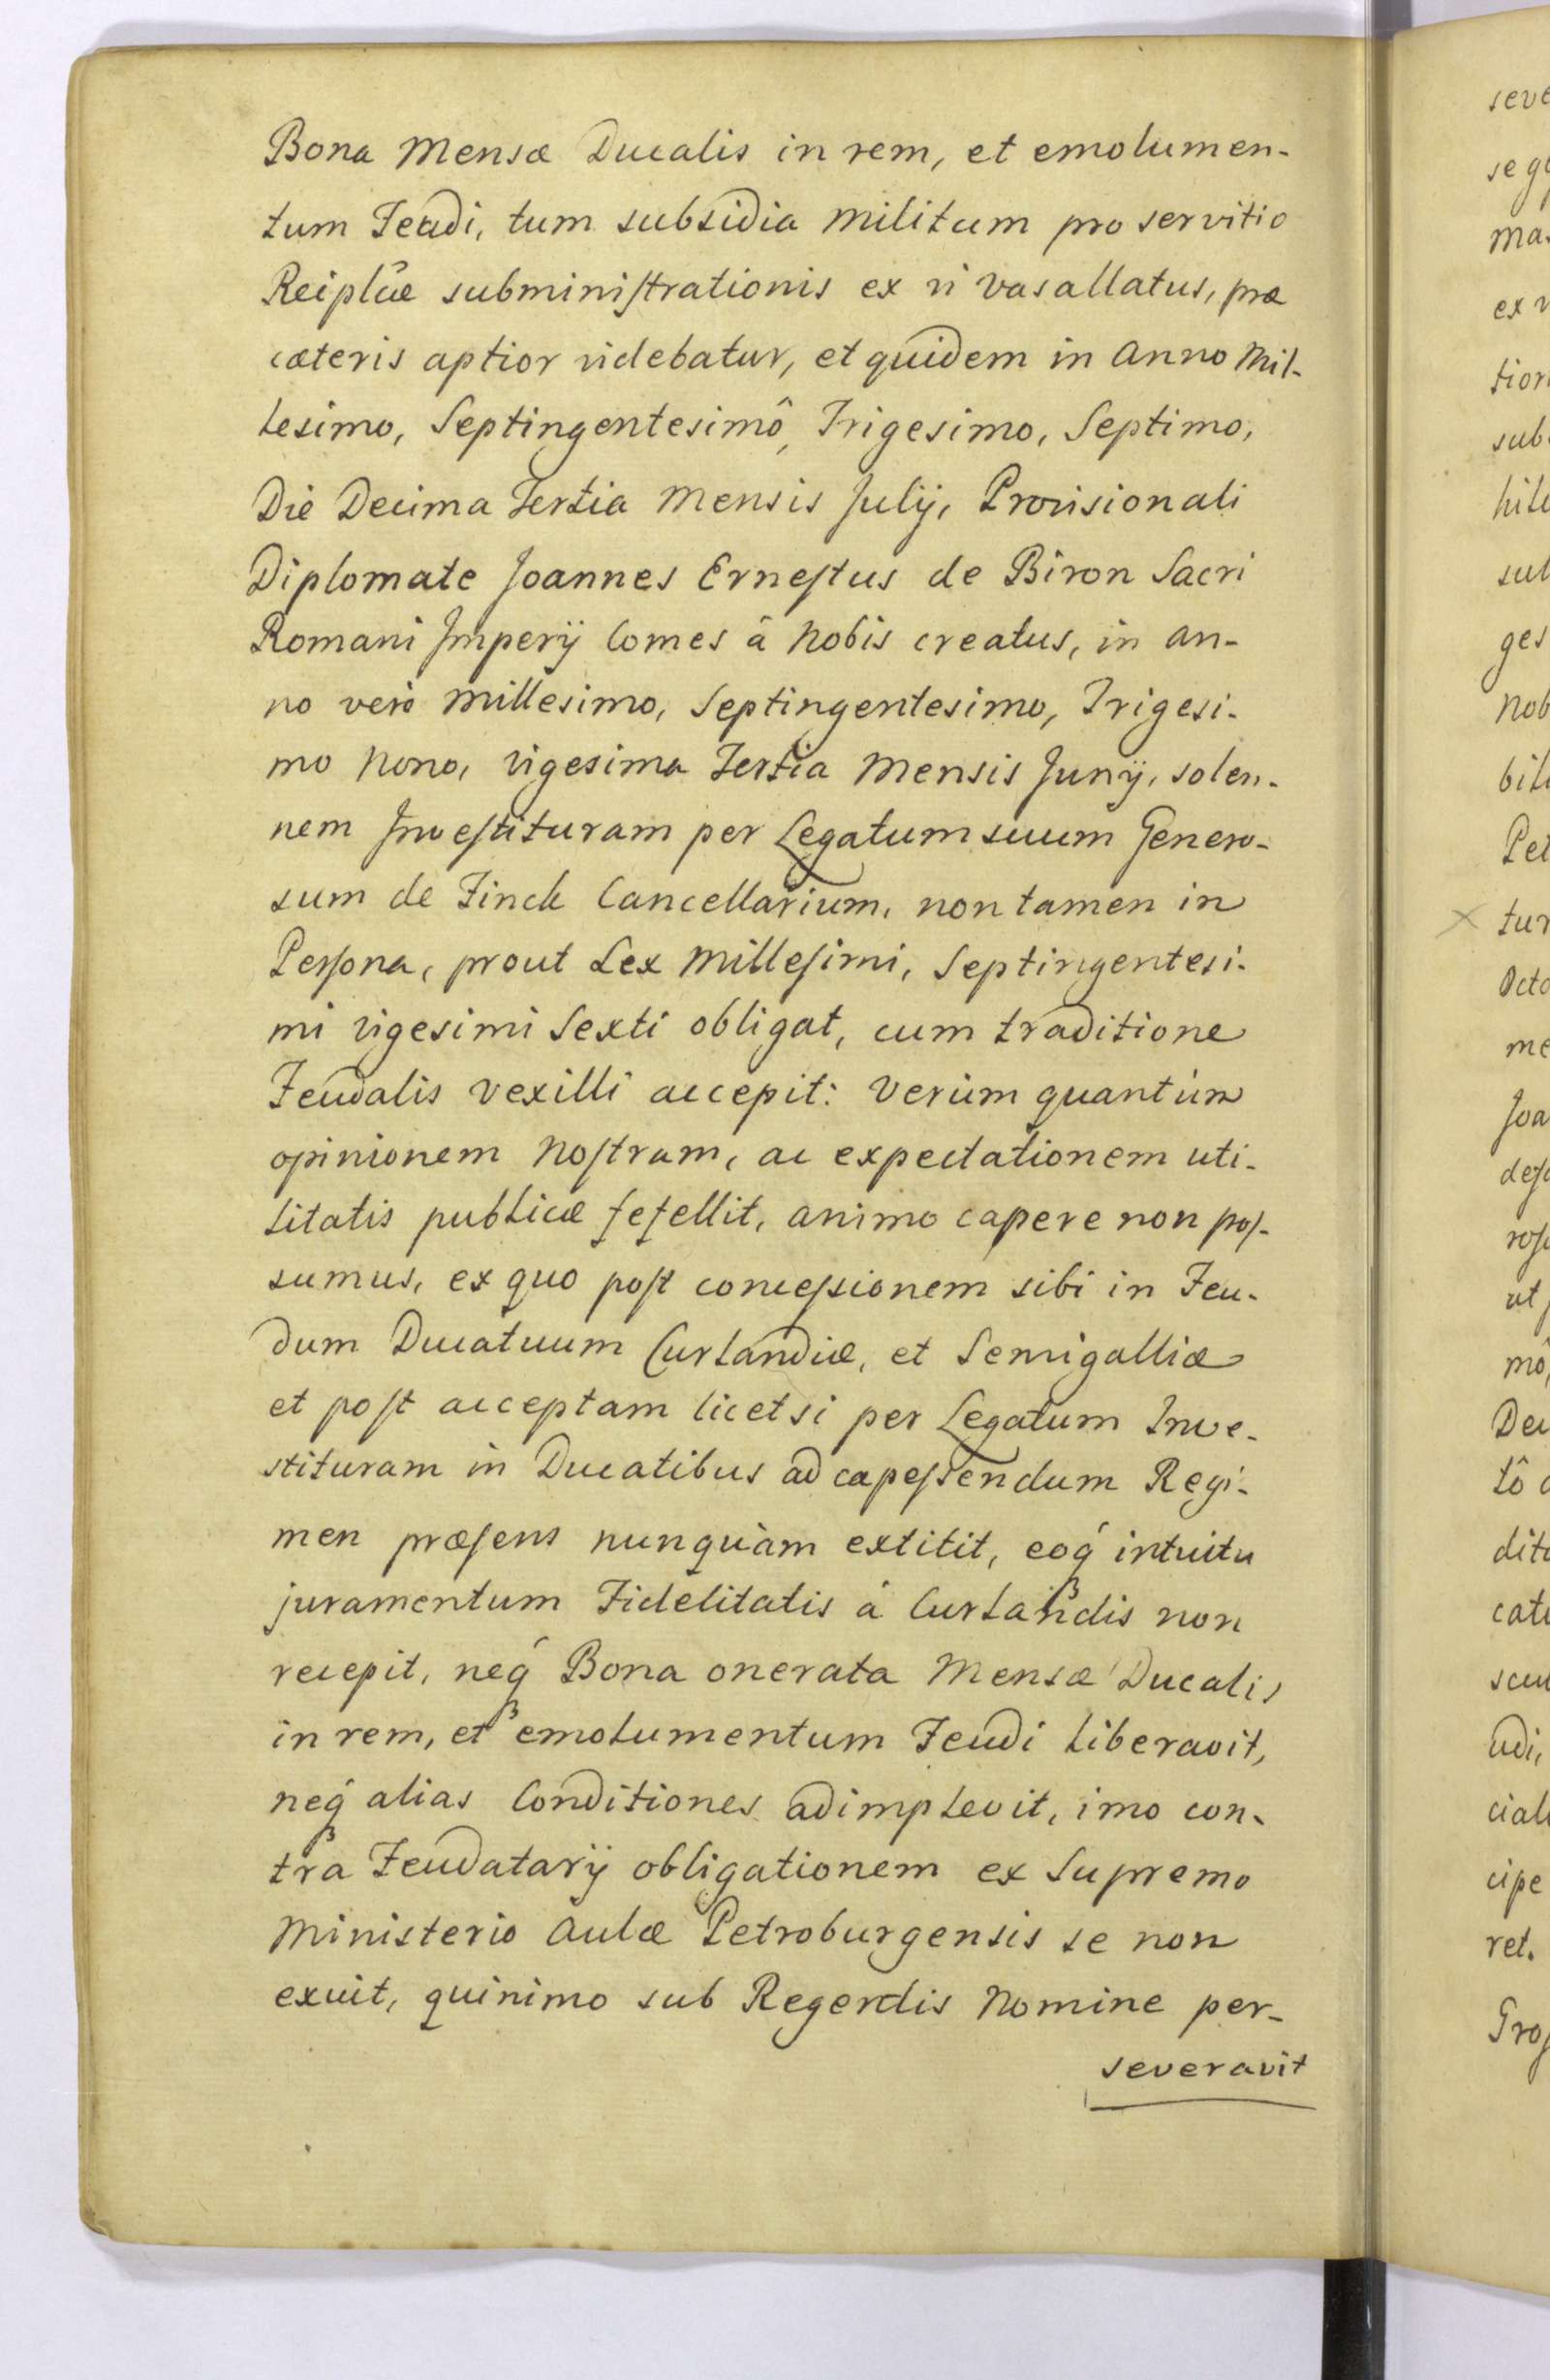 Bona Mensæ Ducalis in rem, et emolumen-
tum Feudi, tum subsidia militum pro servitio
Reiplcæ subminiſtrationis ex vi vasallatus, præ
cæteris aptior videbatur, et quidem in Anno Mil-
lesimo, Septingentesimô, Trigesimo, Septimo,
Die Decima Tertia Mensis Julij, Provisionali
Diplomate Joannes Erneſtus de Biron Sacri
Romani Imperij Comes â Nobis creatus, in an-
no verò Millesimo, Septingentesimo, Trigesi-
mo Nono, vigesima Tertia Mensis Junij, solen-
nem Inveſtituram per Legatum suum Genero-
sum de Finck Cancellarium, non tamen in
Perſona, prout Lex Milleſimi, Septingentesi-
mi vigesimi Sexti obligat, cum traditione
Feudalis vexilli accepit: Verùm quantùm
opinionem Noſtram, ac expectationem uti-
litatis publicæ fefellit, animo capere non poſ-
sumus, ex quo poſt conceſsionem sibi in Feu-
dum Ducatuum Curlandiæ, et Semigalliæ
et poſt acceptam licet si per Legatum Inve-
stituram in Ducatibus ad capeſsendum Regi-
men præſens nunquàm extitit, eoq́ꝫ intuitu
juramentum Fidelitatis á Curlandis non
recepit, neq́ꝫ Bona onerata Mensæ Ducalis
in rem, et emolumentum Feudi liberavit,
neq́ꝫ alias Conditiones adimplevit, imo con-
tra Feudatarij obligationem ex Supremo
Ministerio Aulæ Petroburgensis se non
exuit, quinimo sub Regentis Nomine per-
severavit
seve
ma
ex v
tion
sub
hil
sub
ges
Nob
bil
Pet
× tur
Octo
me
Joa
deſ
roſ
ut
mô,
Dec
tô
dit
cat
scu
udi,
cial
cipe
ret.